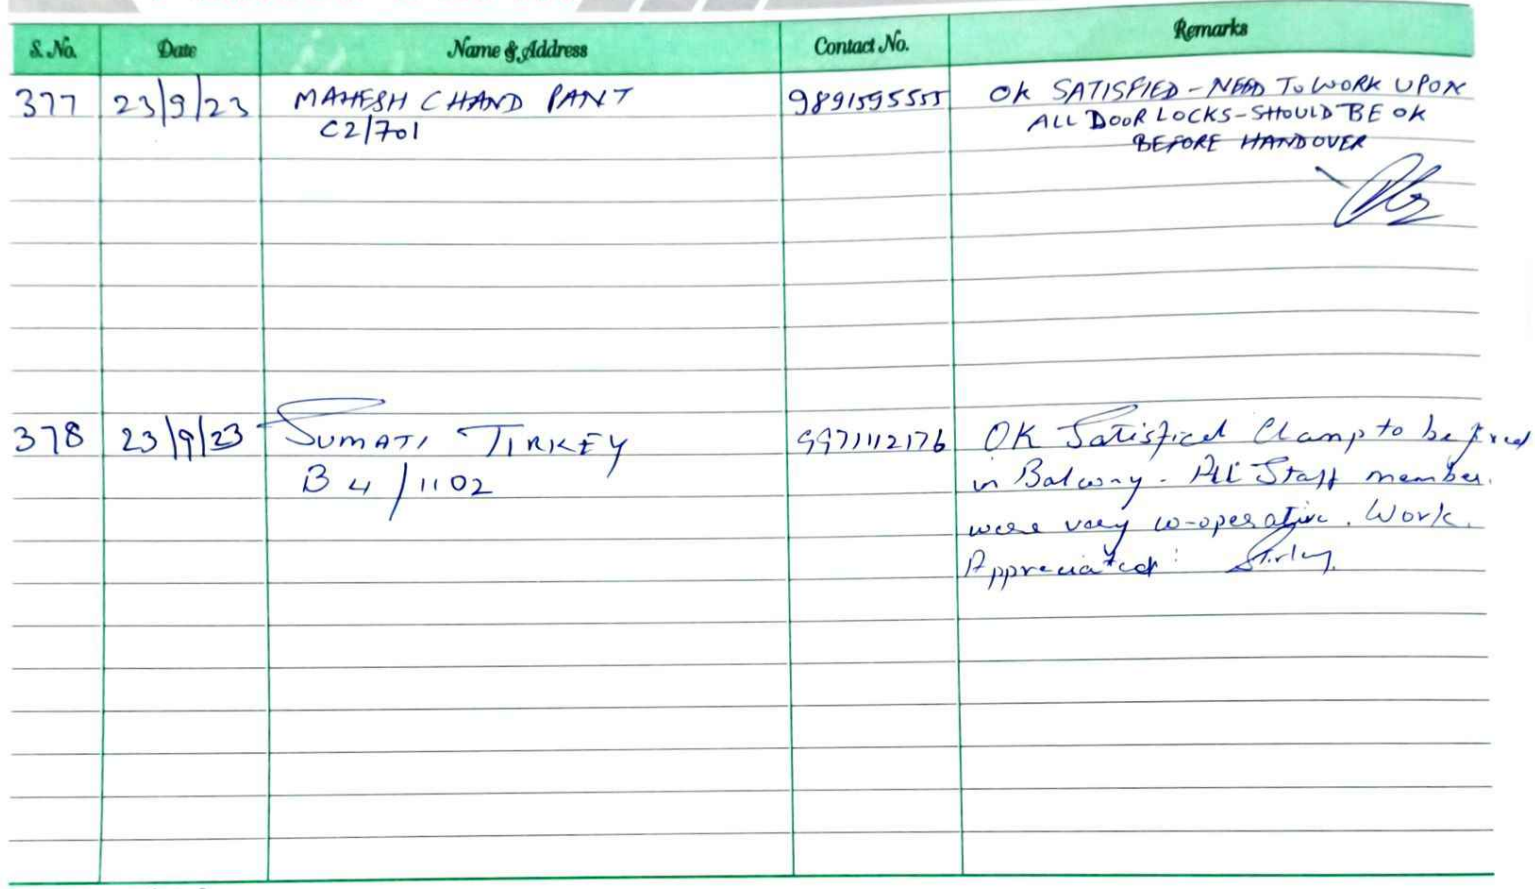 S. No. Date Name & Address Contact No. Remarks
377 23/9/23 MAHESH CHAND PANT 9891595555 OK SATISFIED - NEED TO WORK UPON
C2/701 ALL DOOR LOCKS - SHOULD BE OK
BEFORE HANDOVER
378 23/9/23 SUMATI TIRKEY 9971112176 OK Satisfied Clamp to be fixed
B4/1102 in Balcony. All Staff member
were very co-operative. Work
Appreciated.